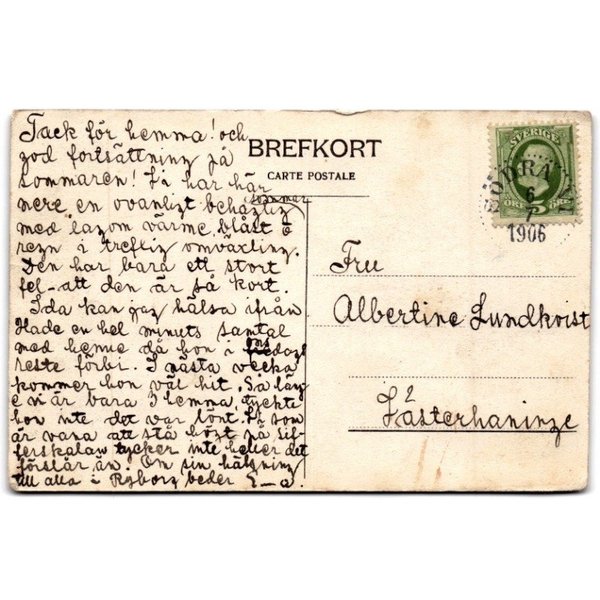 Tack för hemma! och
god fortsättning på
sommaren! Vi har här
nere en ovanligt behaglig
sommer
med lagom värme, blåst o
regn i treflig omväxling.
Den har bara ett stort
fel - att den är så kort.
Ida kan jag hälsa ifrån
Hade en hel minuts samtal
med henne då hon i onsdags
reste förbi. I nästa vecka
kommer hon väl hit. Så länge
vi är bara 3 hemma, tyckte
hon inte det var lönt. Vi som
är vana att stå högt på sif-
ferskalan tycker inte heller det
förslår än. Om sin hälsning
till alla i Ryborg beder E-a.
BREFKORT
CARTE POSTALE
SVERIGE
ÖRE 5 ÖRE
SÖDRA VI
6
7
1906
Fru
Albertine Lundkvist
Västerhaninge